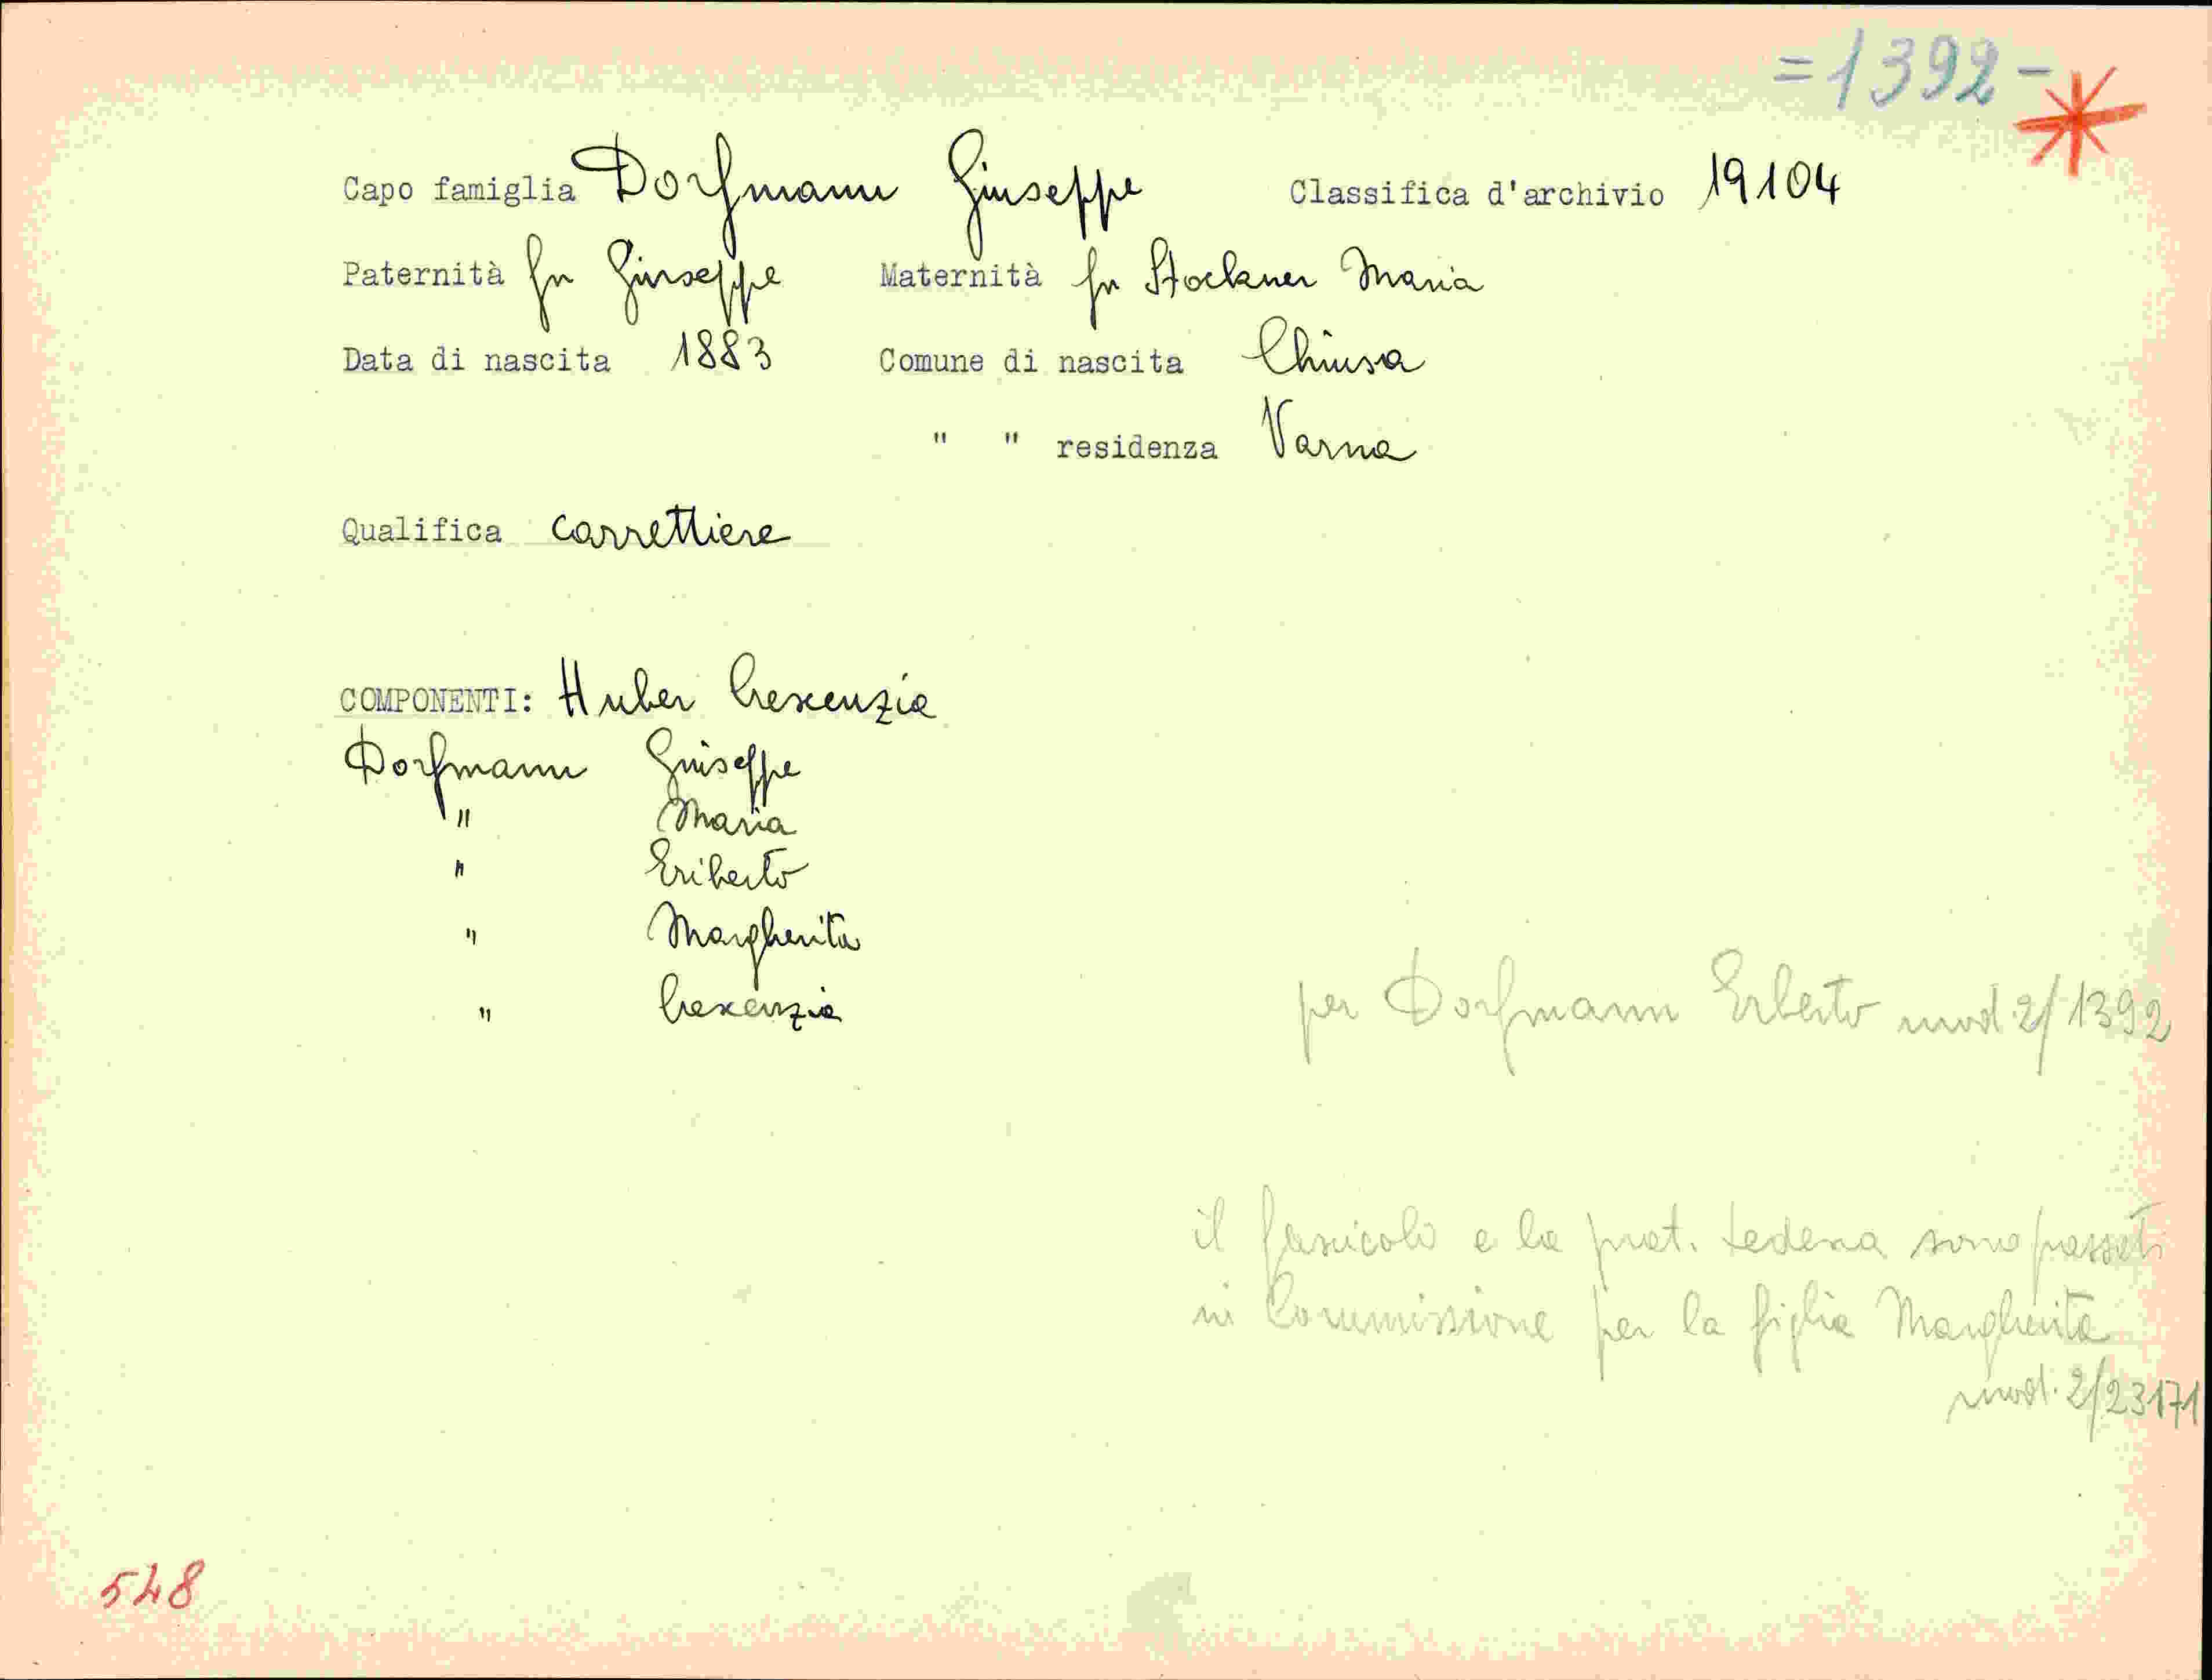 =1392-
Capo famiglia Dorfmann Giuseppe Classifica d'archivio 19104
Paternità fu Giuseppe Maternità fu Stockner Maria
Data di nascita 1883 Comune di nascita Chiusa
" " residenza Varna
Qualifica carrettiere
COMPONENTI: Huber Crescenzia
Dorfmann Giuseppe
" Maria
" Eriberto
" Margherita
" Crescenzia
per Dorfmann Erberto mod. 2/1392
il fascicolo e la prat. tedesca sono passati
in Commissione per la figlia Margherita
mod. 2/23171
548